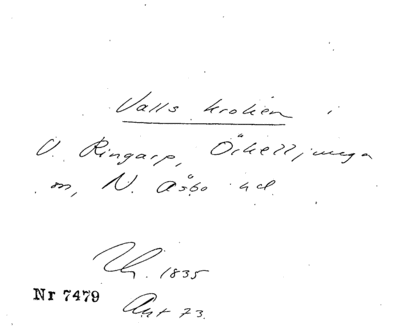 Valls kroken i
V. Ringarp, Örkelljunga
sn, N. Åsbo hd.
Th. 1835
Nr 7479
Ant 73.